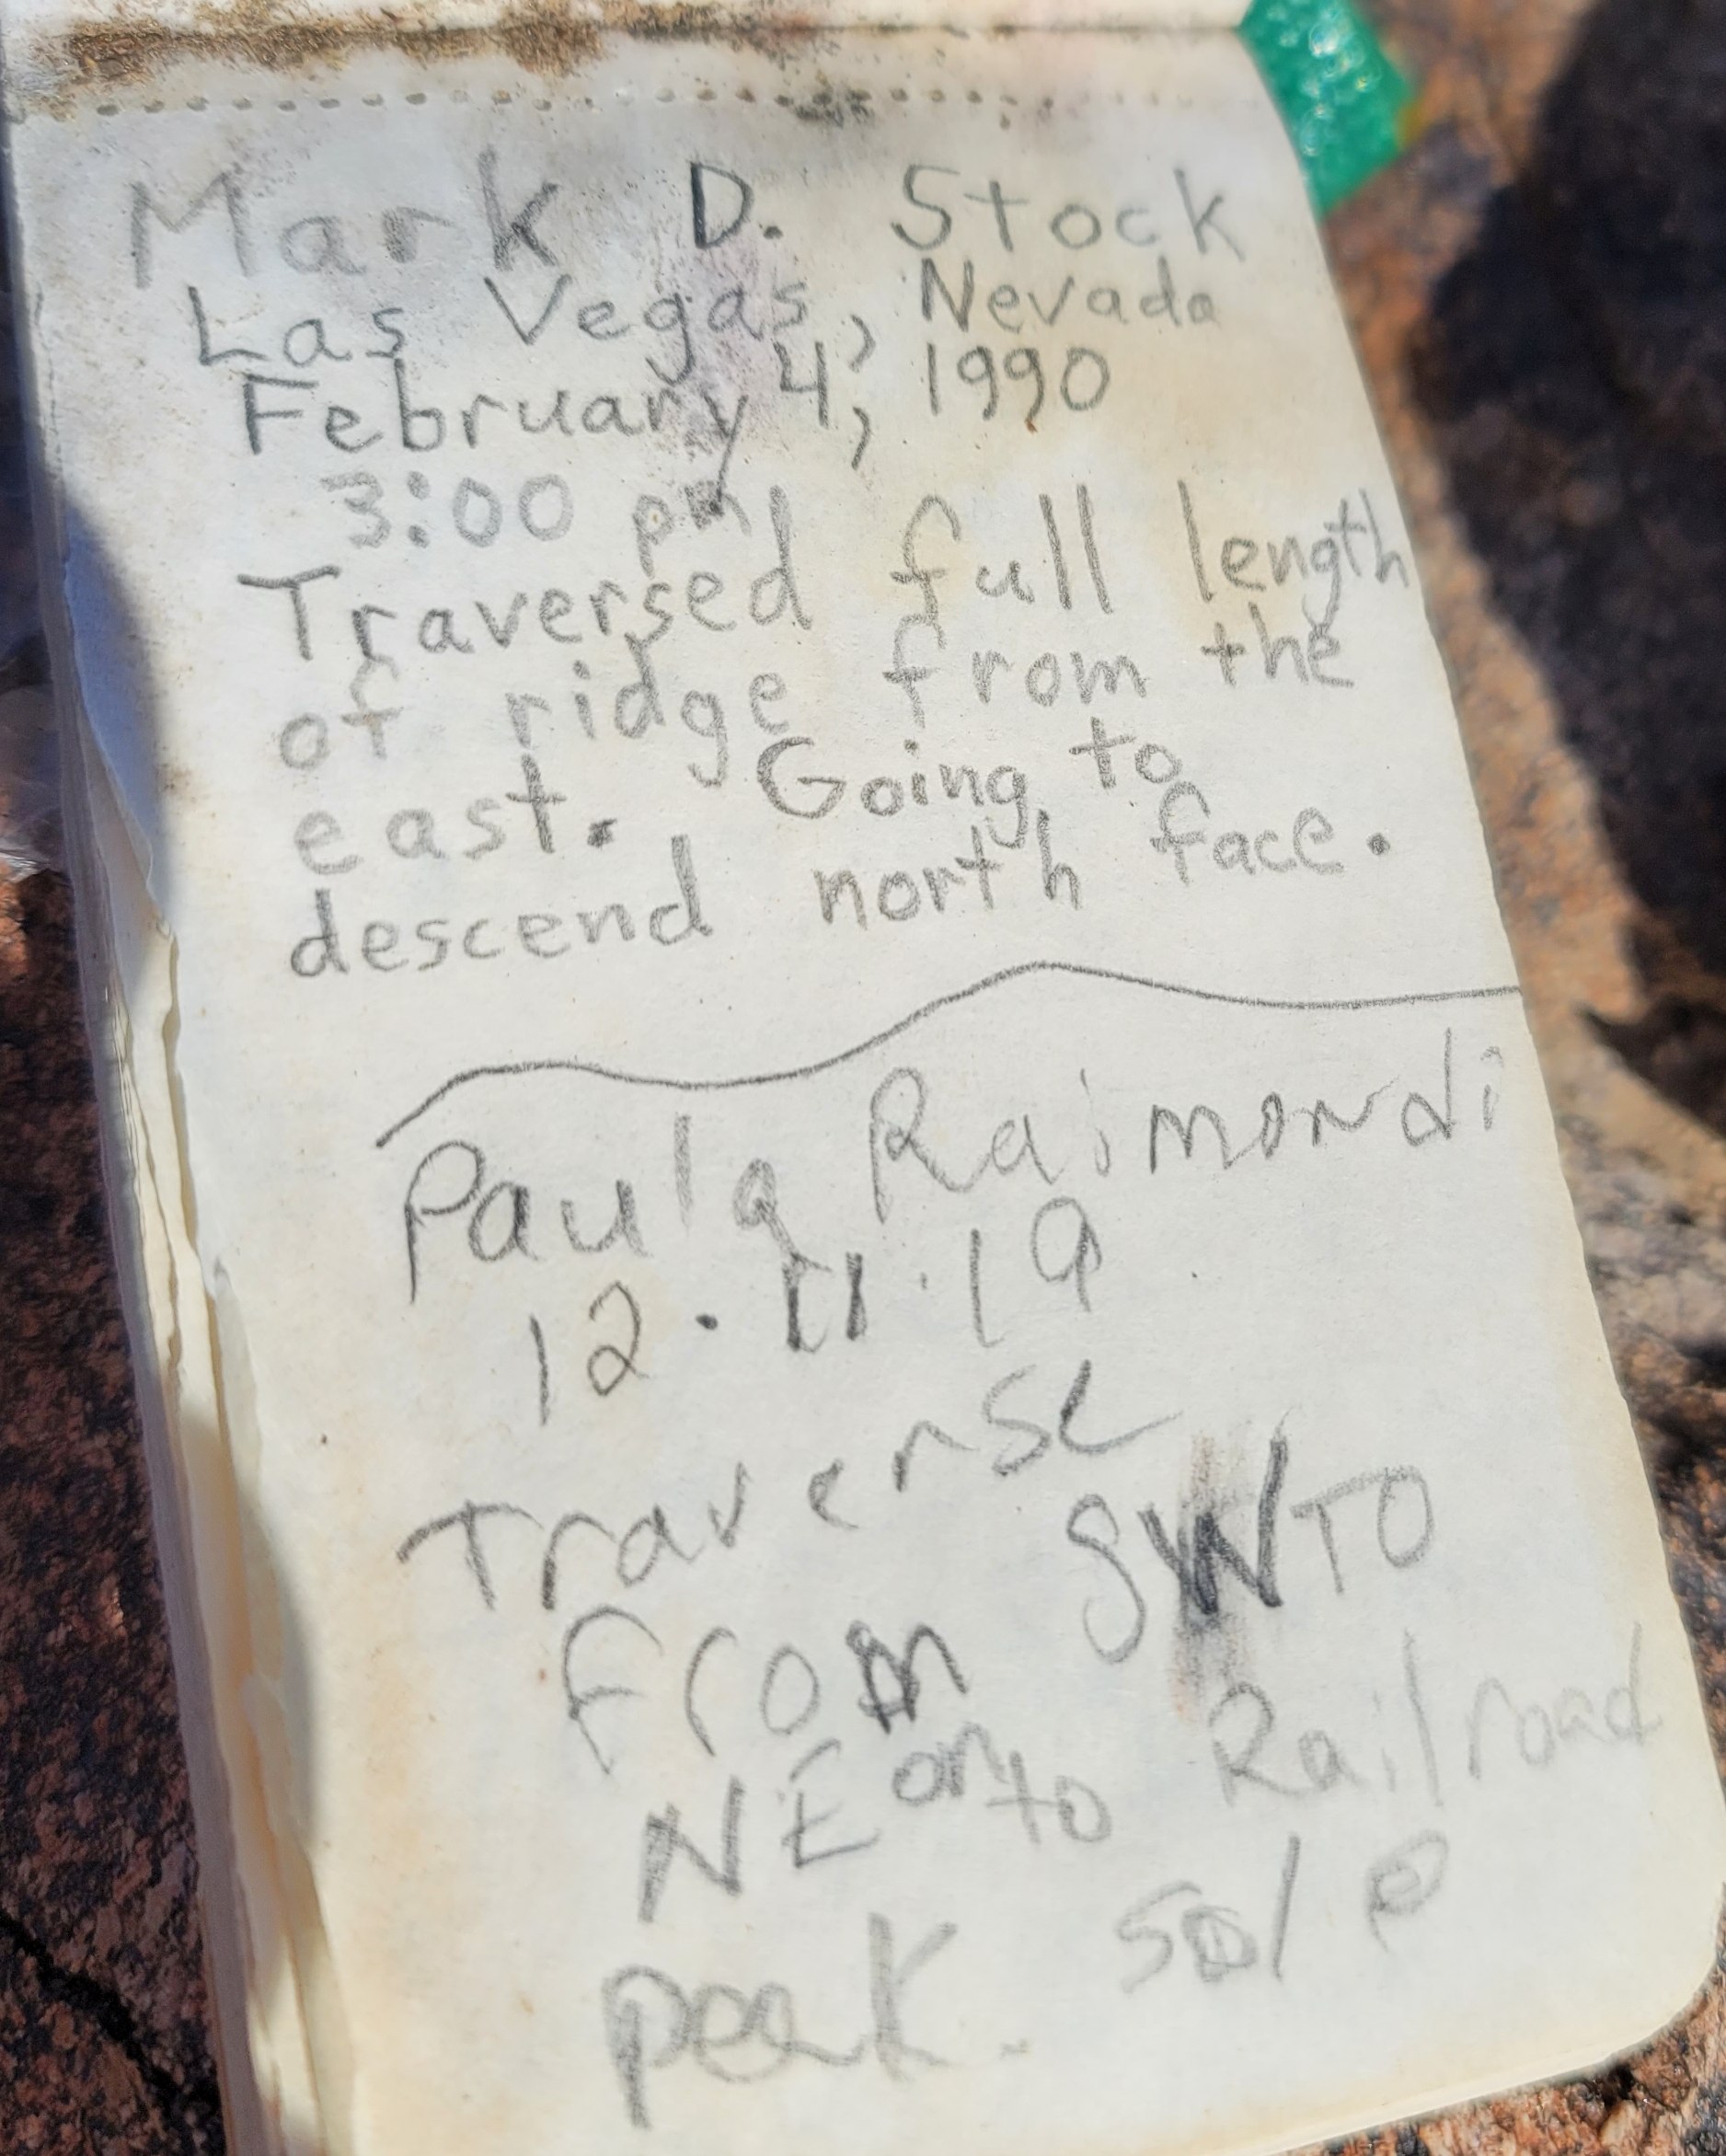 Mark D. Stock
Las Vegas, Nevada
February 4, 1990
3:00 pm
Traversed full length
of ridge from the
east. Going to
descend north face.
Paula Raimondi
12.11.19
Traverse
From SW TO
NE onto Railroad
peak.